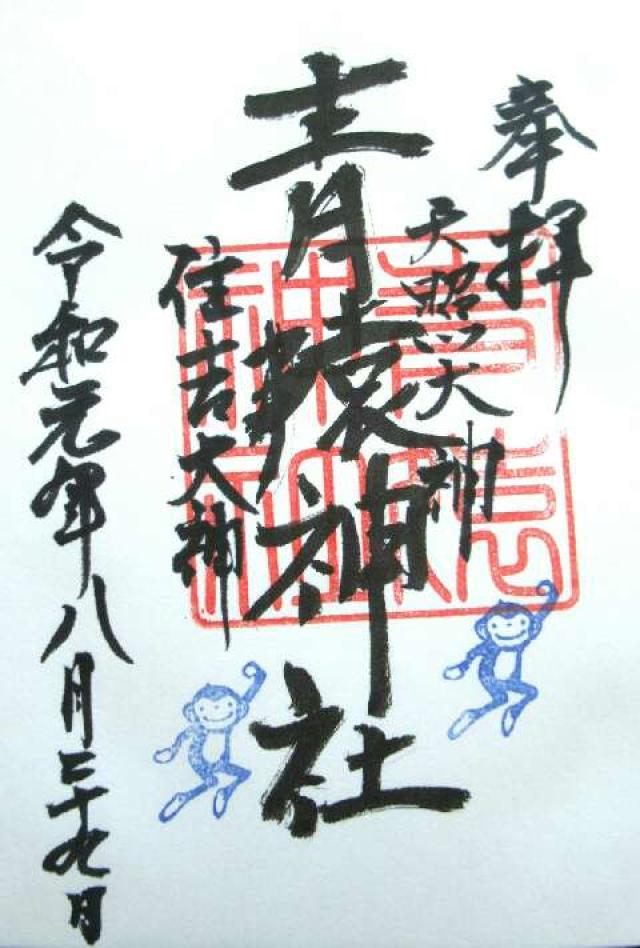 奉拝
天照大神
青猿神社
住吉大神
令和元年八月二十九日